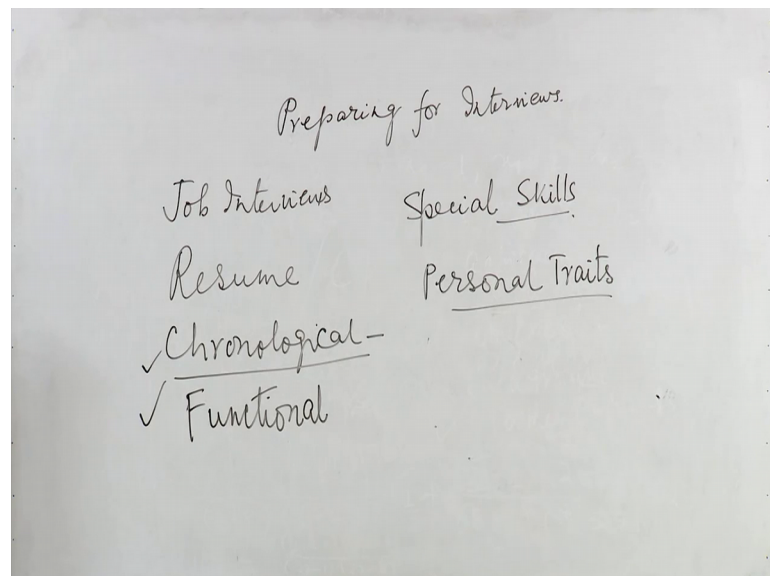 Preparing for Interviews.
Job Interviews
Resume
✓ Chronological -
✓ Functional
Special Skills
Personal Traits